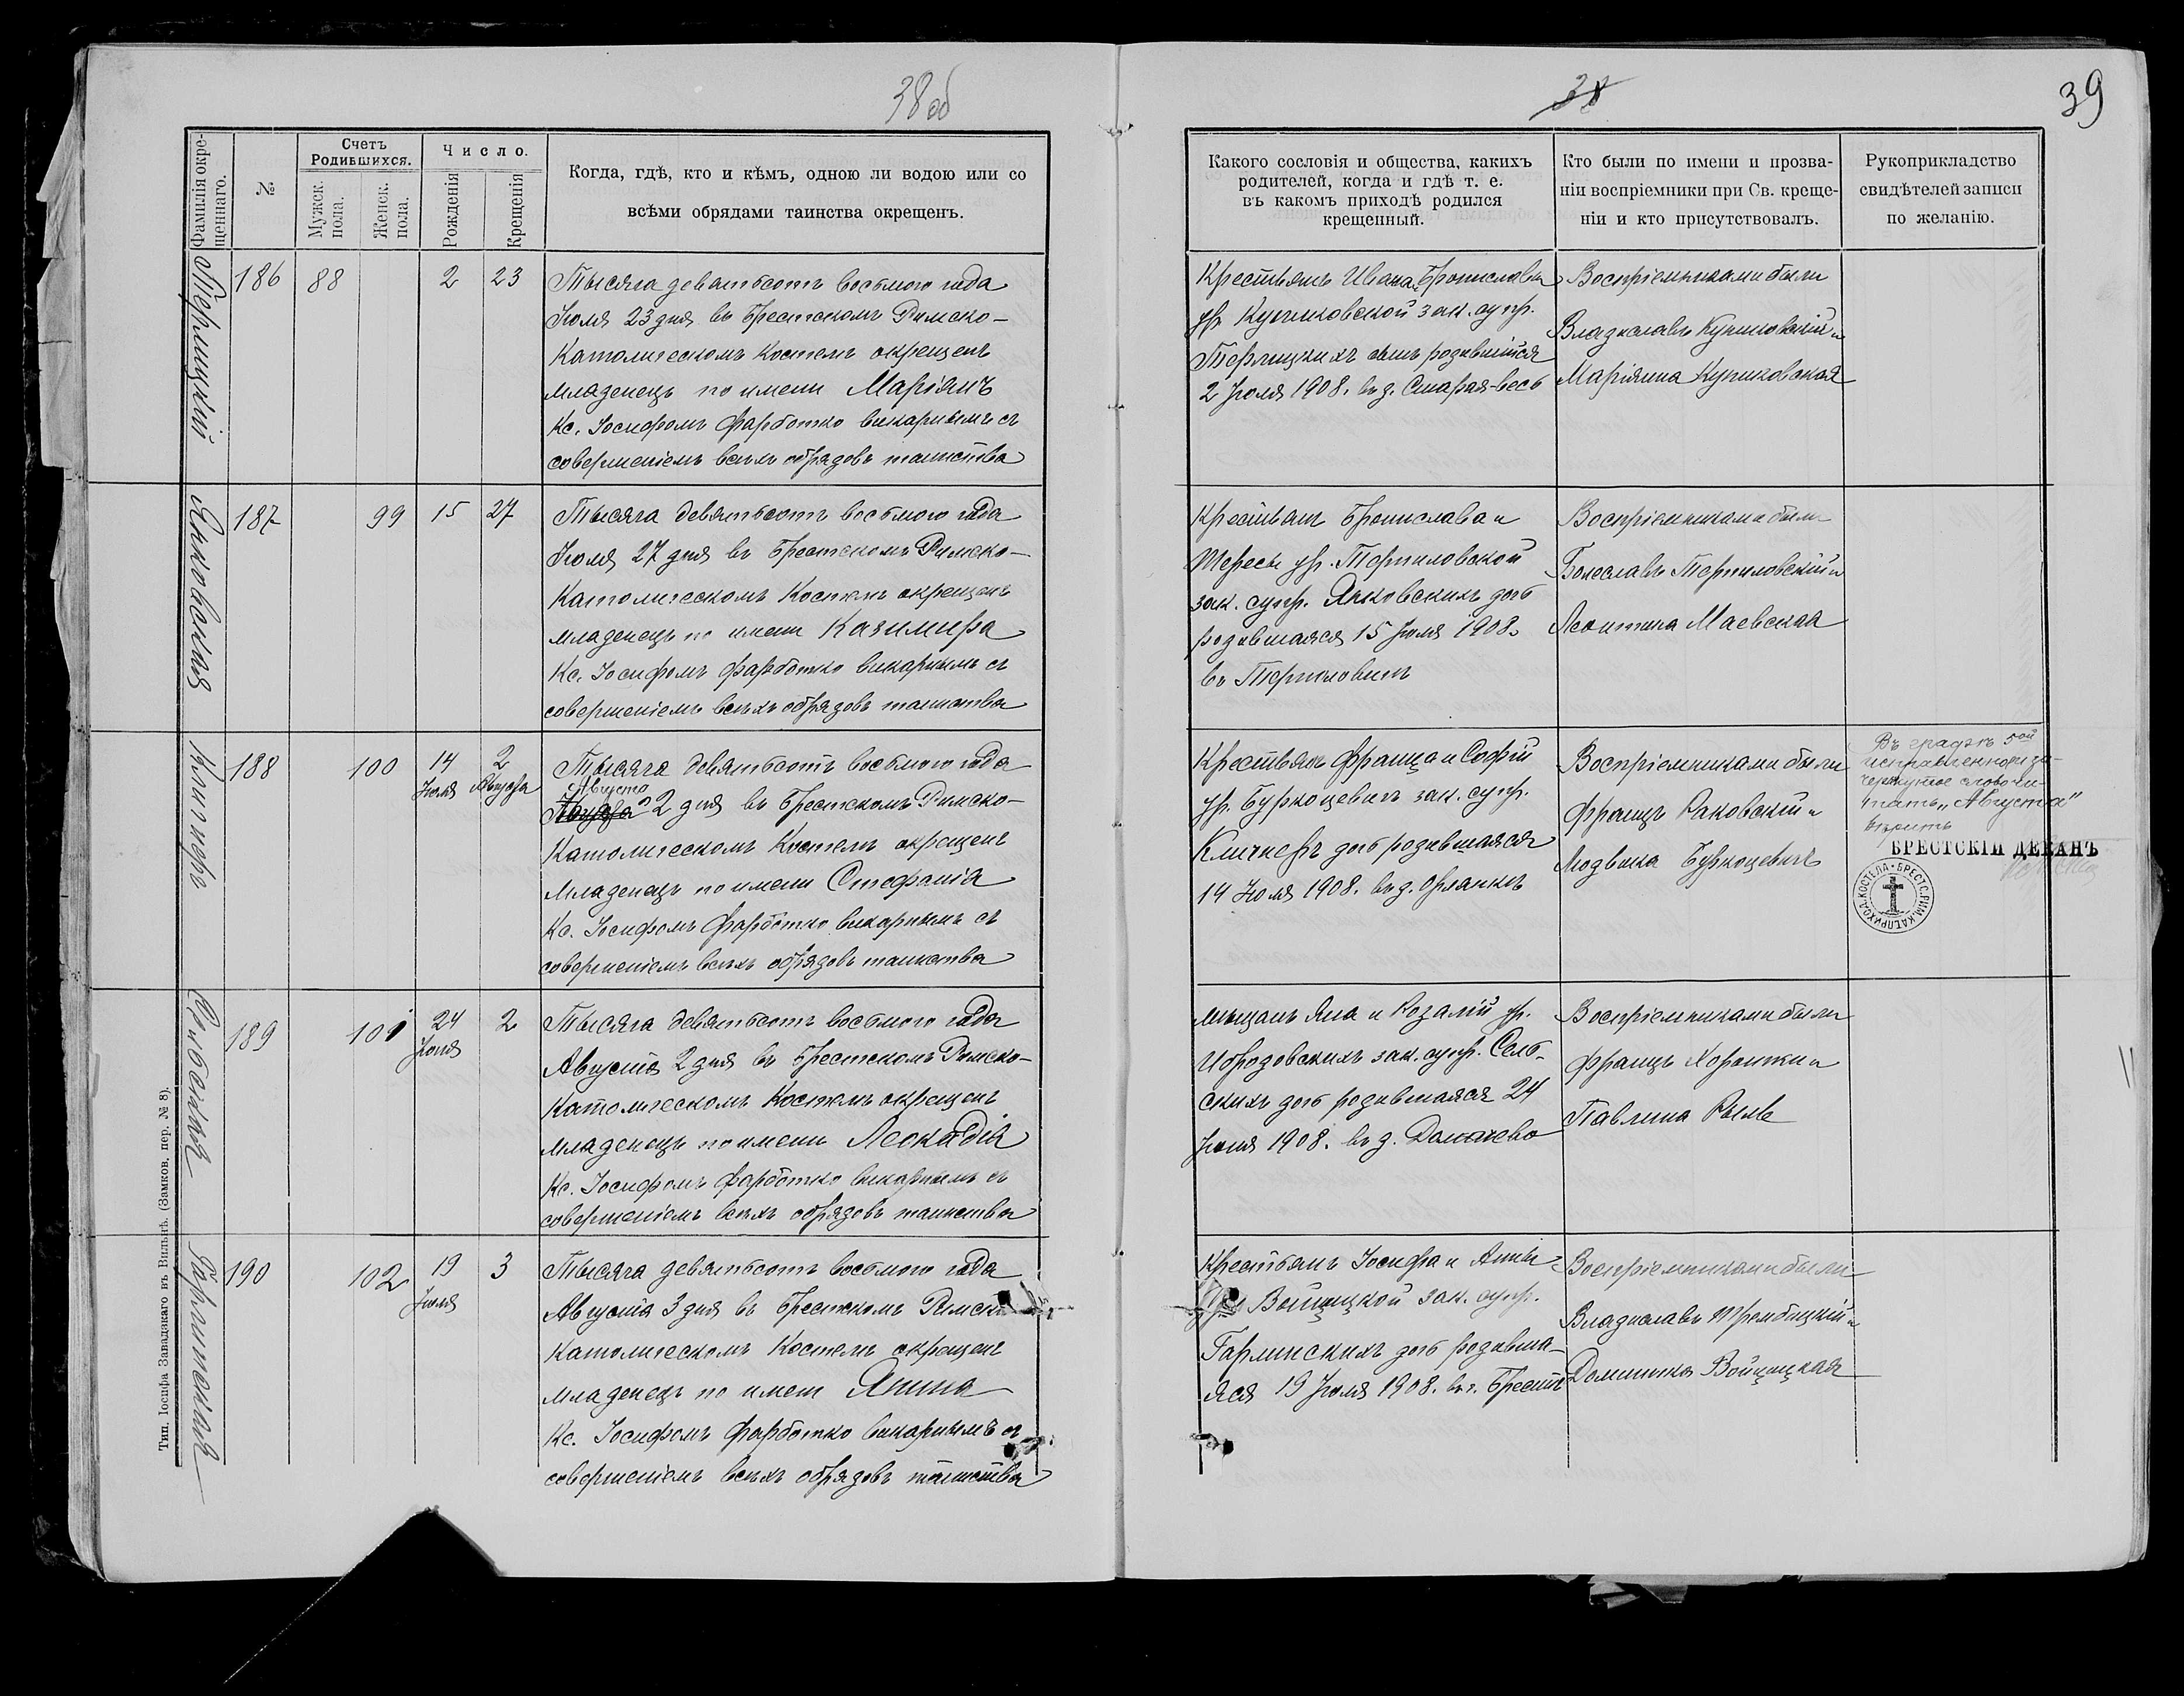 38 об
38
39
Фамилія окре-
щеннаго.
№
Счетъ
Родившихся.
Мужск.
пола.
Женск.
пола.
Число.
Рожденія
Крещенія
Когда, гдѣ, кто и кѣмъ, одною ли водою или со
всѣми обрядами таинства окрещенъ.
Какого сословія и общества, какихъ
родителей, когда и гдѣ т. е.
въ какомъ приходѣ родился
крещенный.
Кто были по имени и прозва-
ніи воспріемники при Св. креще-
ніи и кто присутствовалъ.
Рукоприкладство
свидѣтелей записи
по желанію.
Терлицкій
186
88
2
23
Тысяча девятьсотъ восьмого года
Іюля 23 дня въ Брестскомъ Римско-
Католическомъ Костелѣ окрещенъ
младенецъ по имени Маріянъ
Кс. Іосифомъ Фарботко викарнымъ съ
совершеніемъ всѣхъ обрядовъ таинства
Крестьянъ Ивана и Брониславы
ур. Куликовской зак. супр.
Терлицкихъ сынъ родившійся
2 Іюля 1908 г. въ д. Старая-весь
Воспріемниками были
Владиславъ Куликовскій и
Маріянна Куликовская
Янковская
187
99
15
27
Тысяча девятьсотъ восьмого года
Іюля 27 дня въ Брестскомъ Римско-
Католическомъ Костелѣ окрещенъ
младенецъ по имени Казимира
Кс. Іосифомъ Фарботко викарнымъ съ
совершеніемъ всѣхъ обрядовъ таинства
Крестьянъ Бронислава и
Тересы ур. Терпиловской
зак. супр. Янковскихъ дочь
родившаяся 15 Іюля 1908 г.
въ Терпиловичи
Воспріемниками были
Болеславъ Терпиловскій и
Леонтина Маевская
Клинперъ
188
100
14
Іюля
2
Августа
Тысяча девятьсотъ восьмого года
Августа
2 дня въ Брестскомъ Римско-
Католическомъ Костелѣ окрещенъ
младенецъ по имени Стефанія
Кс. Іосифомъ Фарботко викарнымъ съ
совершеніемъ всѣхъ обрядовъ таинства
Крестьянъ Франца и Софіи
ур. Буркоцевичъ зак. супр.
дочь родившаяся
14 Іюля 1908 г. въ д. Орлянкѣ
Воспріемниками были
Францъ Раковскій и
Людвика Буркоцевичъ
Въ графѣ 5ой
исправленному за-
черкнутое слово чи-
тать „Августа"
вѣрить
БРЕСТСКІЙ ДЕКАНЪ
БРЕСТС. РИМ. КАТ. ПРИХОД. КОСТЕЛА
189
101
24
Іюля
2
Тысяча девятьсотъ восьмого года
Августа 2 дня въ Брестскомъ Римско-
Католическомъ Костелѣ окрещенъ
младенецъ по имени Леокадія
Кс. Іосифомъ Фарботко викарнымъ съ
совершеніемъ всѣхъ обрядовъ таинства
Мѣщанъ Яна и Розаліи ур.
зак. супр. Сель-
скихъ дочь родившаяся 24
Іюля 1908 г. въ д. Домачево
Воспріемниками были
Францъ Хоронжи и
Павлина Рыль
Горлинская
190
102
19
Іюля
3
Тысяча девятьсотъ восьмого года
Августа 3 дня въ Брестскомъ Римско
Католическомъ Костелѣ окрещенъ
младенецъ по имени Янина
Кс. Іосифомъ Фарботко викарнымъ съ
совершеніемъ всѣхъ обрядовъ таинства
Крестьянъ Іосифа и Анны
ур. Войцицкой зак. супр.
Горлинскихъ дочь родивша-
яся 19 Іюля 1908 г. въ г. Брестѣ
Воспріемниками были
Владиславъ Трембицкій и
Доминика Войцицкая
Тип. Іосифа Завадзкаго въ Вильнѣ. (Замков. пер. № 8).